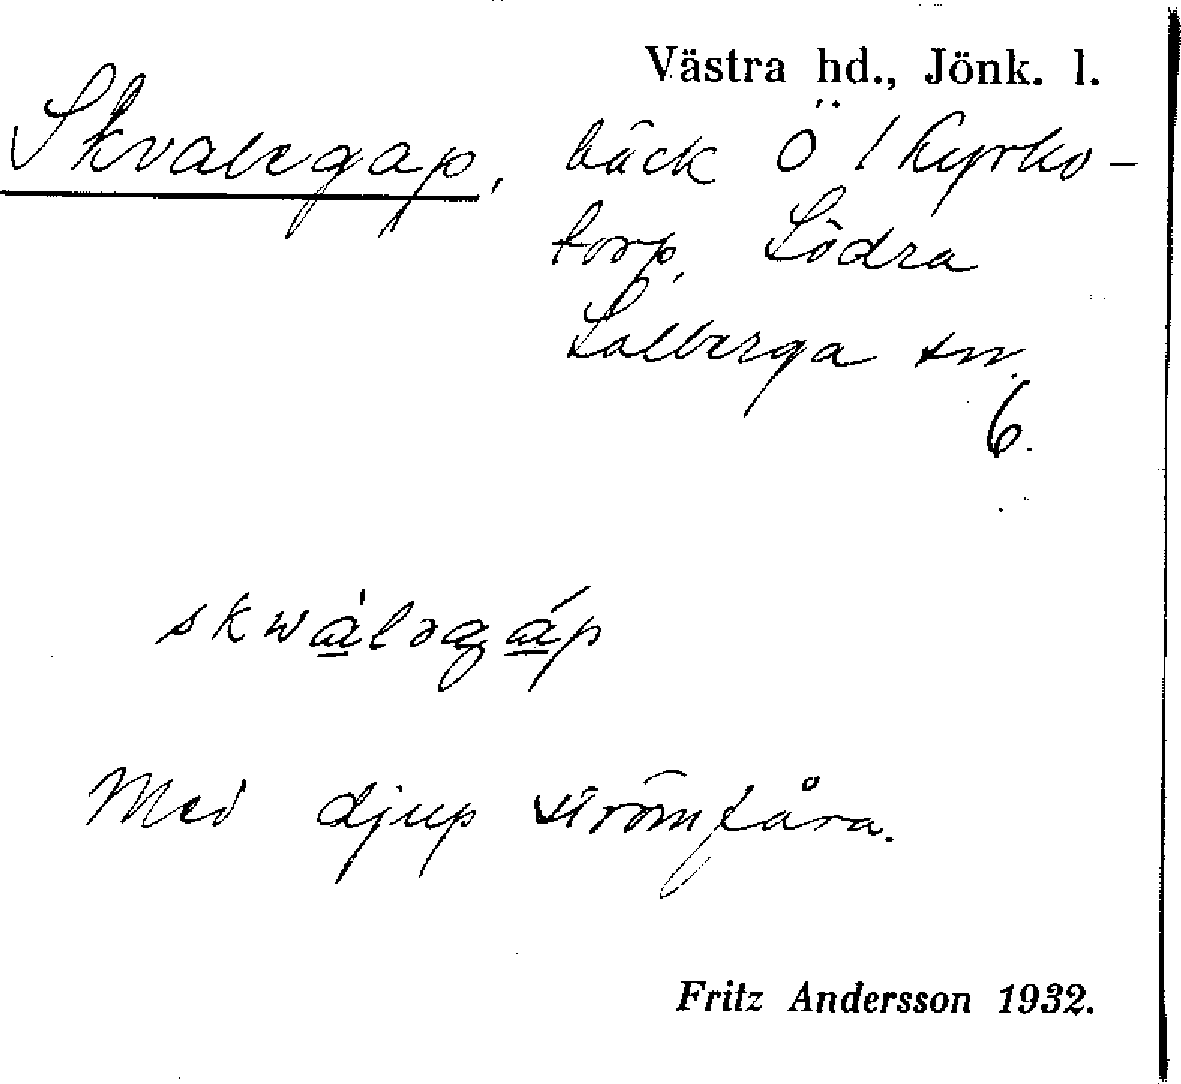 Västra hd., Jönk. l.
Skvalegap, bäck Ö / Kyrko-
torp, Södra
Solberga sn.
6.
skwàləgáp
Med djup strömfåra.
Fritz Andersson 1932.